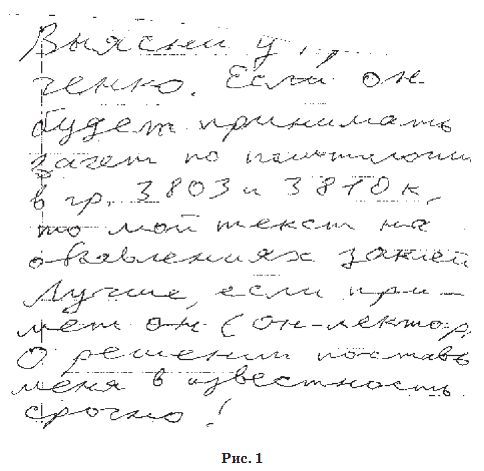 Выясни у
ченко. Если он
будет принимать
зачет по
в гр. 3803 и 3810к,
то мой текст на
объявлениях заклей
Лучше, если при-
мет он (он-лектор)
О решении поставь
меня в известность
срочно!
Рис. 1